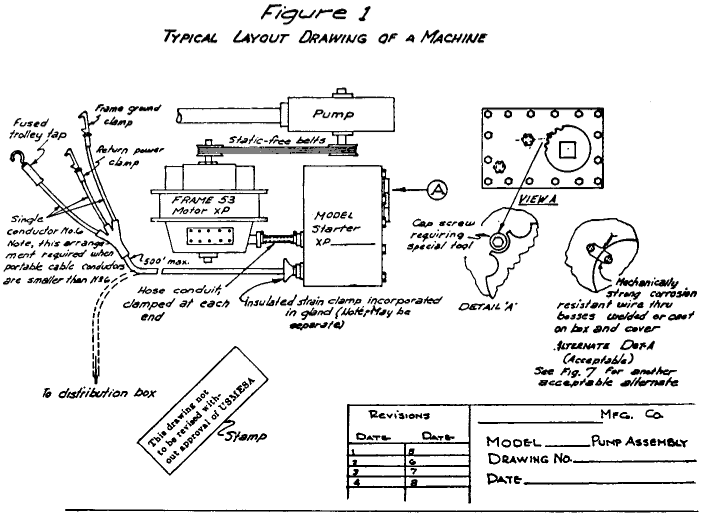 Figure 1
TYPICAL LAYOUT DRAWING OF A MACHINE
Fused
trolley tap
Frame ground
clamp
Return power
clamp
Pump
Static-free belts
FRAME 53
Motor XP
MODEL
Starter
XP
A
VIEW A
Single
conductor No.6
Note, this arrange-
ment required when
portable cable conductors
are smaller than No6.
500' max.
Hose conduit,
clamped at each
end
Insulated strain clamp incorporated
in gland (Note; May be
separate)
Cap screw
requiring
special tool
DETAIL 'A'
Mechanically
strong corrosion
resistant wire thru
bosses welded or cast
on box and cover
ALTERNATE DET-A
(Acceptable)
See Fig. 7 For another
acceptable alternate
To distribution box
This drawing not
to be revised with-
out approval of USMESA
Stamp
REVISIONS
DATE DATE
1 5
2 6
3 7
4 8
MFG. CO
MODEL PUMP ASSEMBLY
DRAWING NO.
DATE